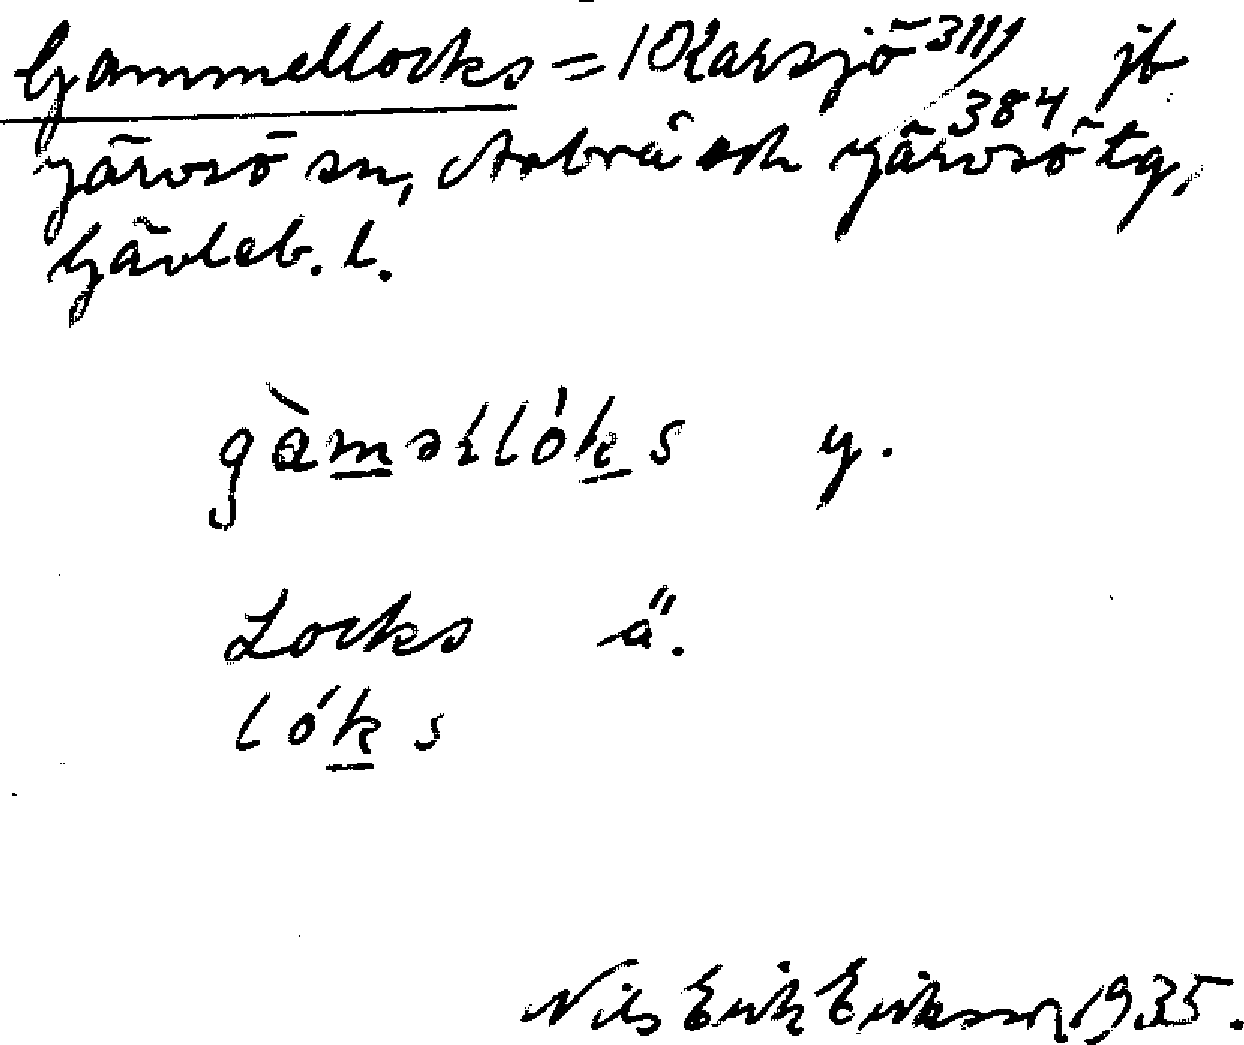 Gammellocks = 10 Karsjö 3111/384 jb
Järvsö sn, Arbrå och Järvsö tg,
Gävleb. l.
gàmәɫlóks y.
Locks ä.
lóks
Nils Erik Eriksson, 1935.